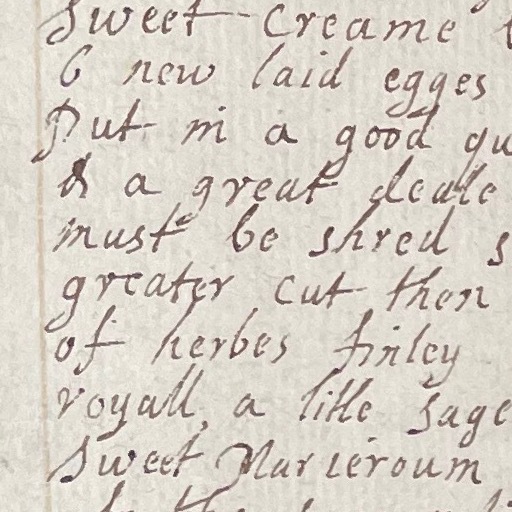 Sweet Creame
6 new laid egges
Put in a good
& a great deale
must be shred
greater cut then
of herbes finley
royall, a litle sage
Sweet Marieroum